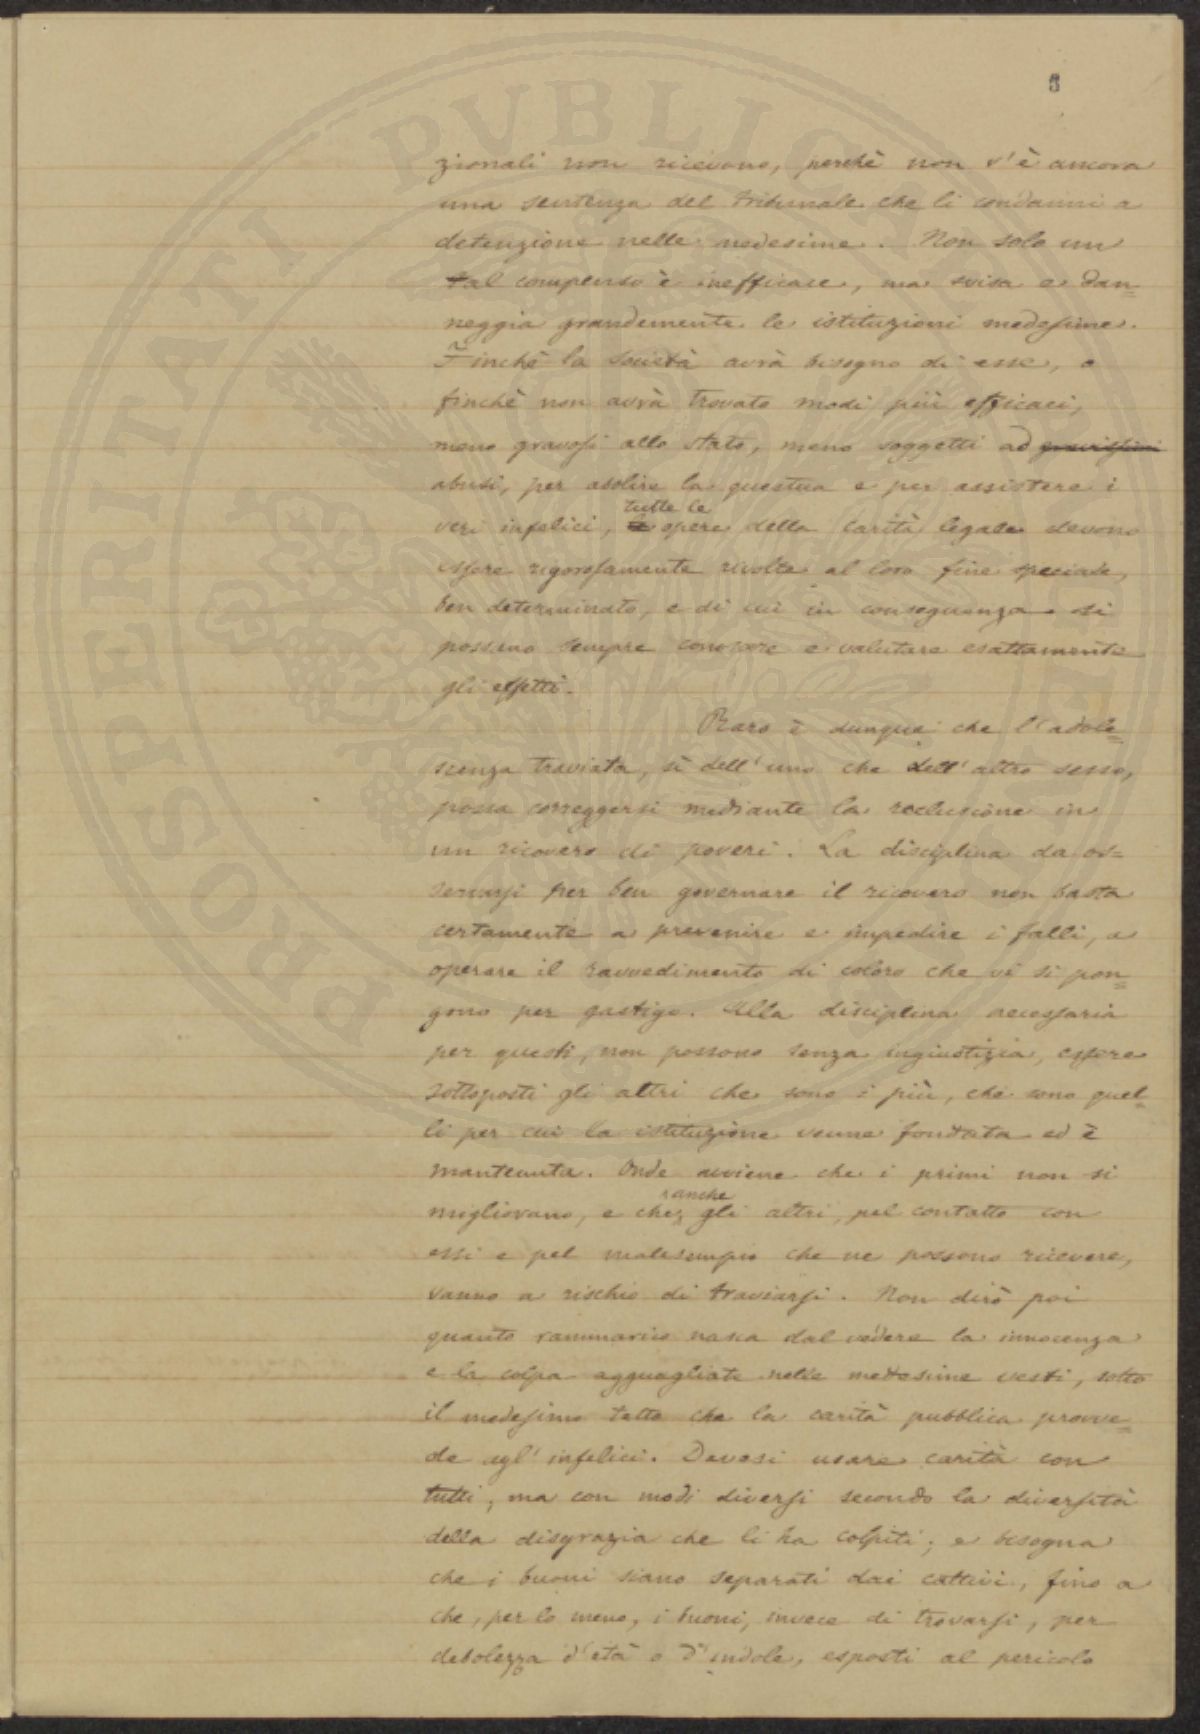 5
PROSPERITATI PUBLICAE
zionali non ricevono, perchè non v'è ancora
una sentenza del tribunale che li condanni a
detenzione nelle medesime. Non solo un
tal compenso è inefficace, ma svisa e dan=
neggia grandemente le istituzioni medesime.
Finchè la Società avrà bisogno di esse, o
finchè non avrà trovato modi più efficaci,
meno gravosi allo stato, meno soggetti ad gravissimi
abusi, per abolire la questua e per assistere i
tutte le
veri infelici, le opere della carità legale devono
essere rigorosamente rivolte al loro fine speciale,
ben determinato, e di cui in conseguenza si
possano sempre conoscere e valutare esattamente
gli effetti.
Raro è dunque che l'adole=
scenza traviata, sì dell'uno che dell'altro sesso,
possa correggersi mediante la reclusione in
un ricovero di poveri. La disciplina da os=
servarsi per ben governare il ricovero non basta
certamente a prevenire e impedire i falli, a
operare il ravvedimento di coloro che vi si pon=
gono per gastigo. Alla disciplina necessaria
per questi, non possono senza ingiustizia, essere
sottoposti gli altri che sono i più, che sono quel=
li per cui la istituzione venne fondata ed è
mantenuta. Onde avviene che i primi non si
anche
migliorano, e che gli altri, pel contatto con
essi e pel malesempio che ne possono ricevere,
vanno a rischio di traviarsi. Non dirò poi
quanto rammarico nasca dal vedere la innocenza
e la colpa agguagliate nelle medesime vesti, sotto
il medesimo tetto che la carità pubblica provve=
de agl'infelici. Devesi usare carità con
tutti, ma con modi diversi secondo la diversità
della disgrazia che li ha colpiti; e bisogna
che i buoni siano separati dai cattivi, fino a
che, per lo meno, i buoni, invece di trovarsi, per
debolezza d'età o d'indole, esposti al pericolo